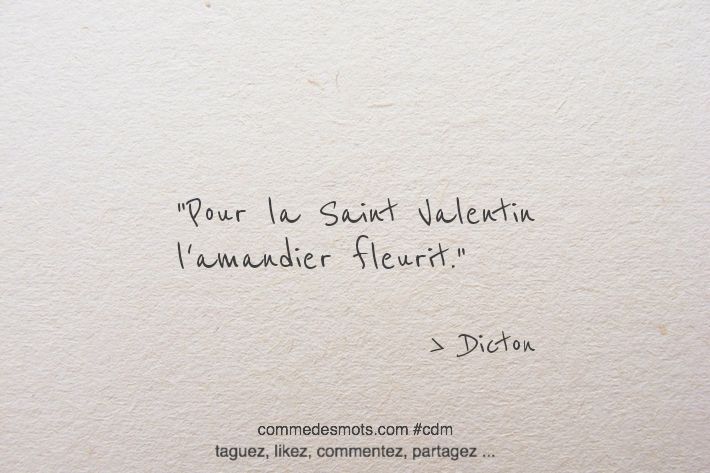 "Pour la Saint Valentin
l'amandier fleurit."
> Dicton
commedesmots.com #cdm
taguez, likez, commentez, partagez ...